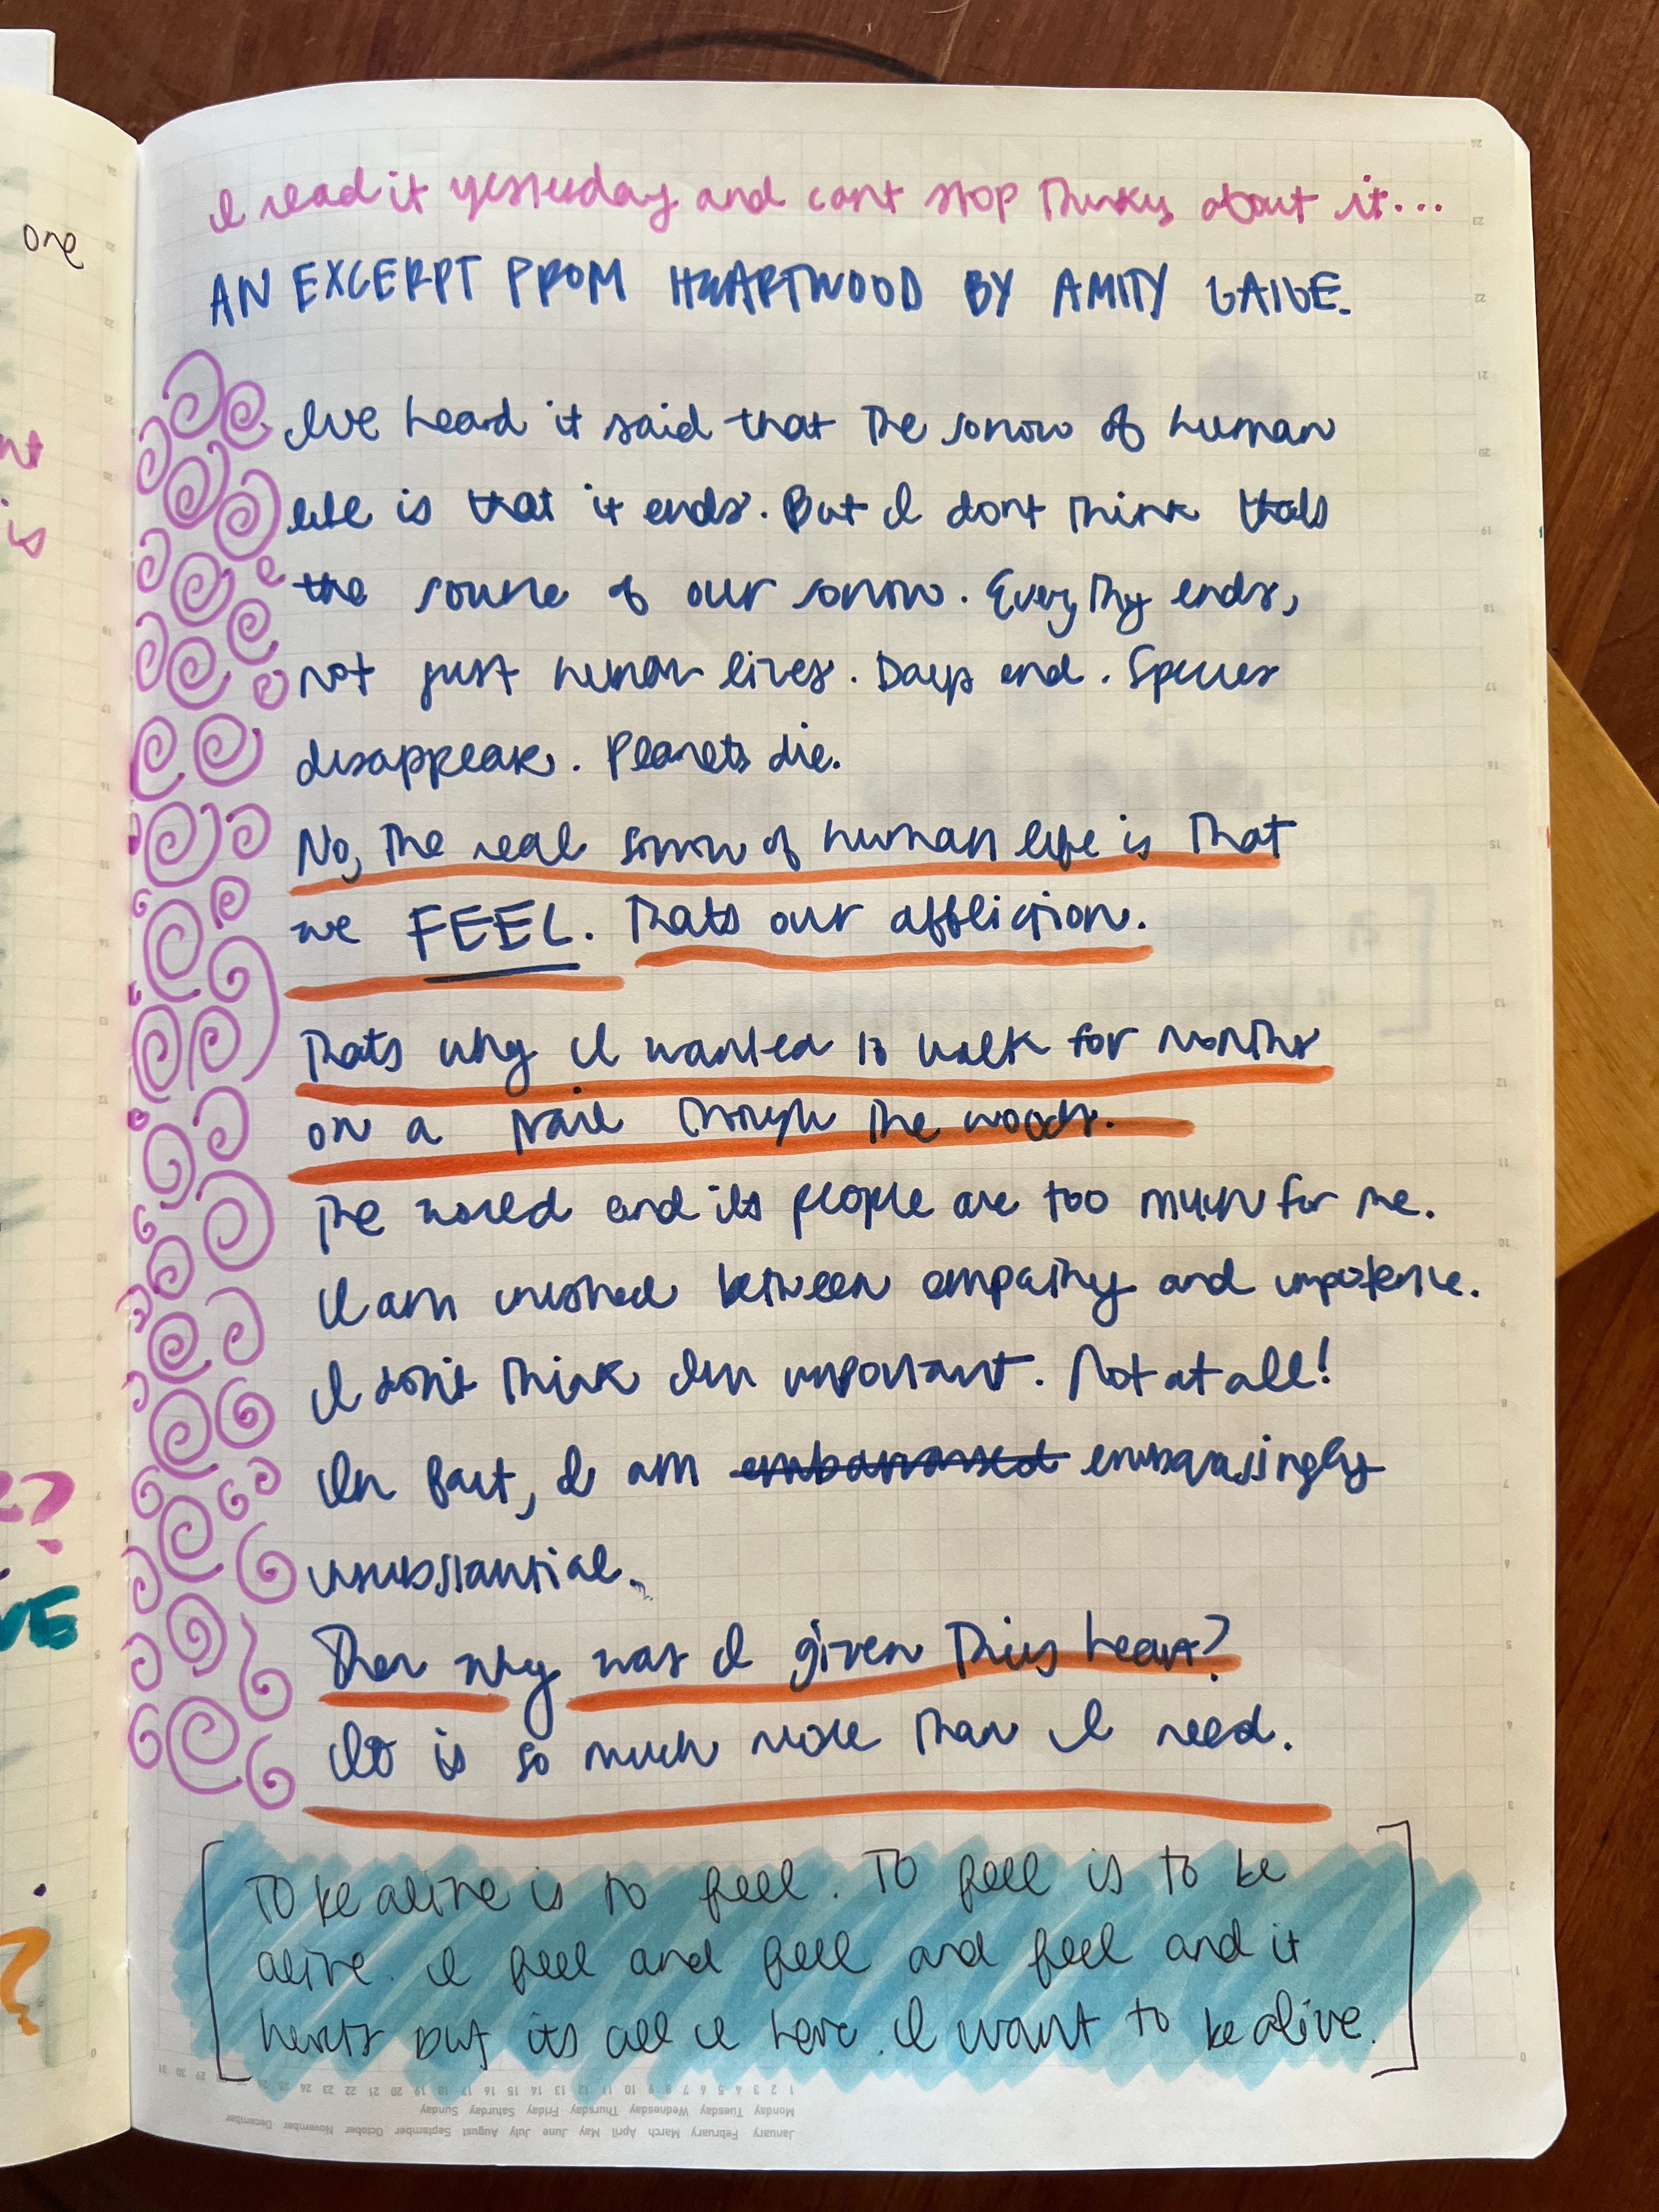 one
nt
is
??
VE
?
I read it yesterday and cant stop thinking about it...
AN EXCERPT FROM HEARTWOOD BY AMITY GAIGE.
Ive heard it said that the sorrow of human
life is that it ends. But I dont think thats
the source of our sorrow. Everything ends,
not just human lives. Days end. Species
disappear. Planets die.
No, the real sorrow of human life is that
we FEEL. Thats our affliction.
Thats why I wanted to walk for months
on a trail through the woods.
The world and its people are too much for me.
I am crushed between empathy and impotence.
I don't think Im important. Not at all!
In fact, I am embarrassed embarrasingly
unsubstantial.
Then why was I given this heart?
It is so much more than I need.
To be alive is to feel. To feel is to be
alive. I feel and feel and feel and it
hurts but its all I have. I want to be alive.
1 2 3 4 5 6 7 8 9 10 11 12 13 14 15 16 17 18 19 20 21 22 23 24 25 26 27 28 29 30 31
Monday Tuesday Wednesday Thursday Friday Saturday Sunday
January February March April May June July August September October November December